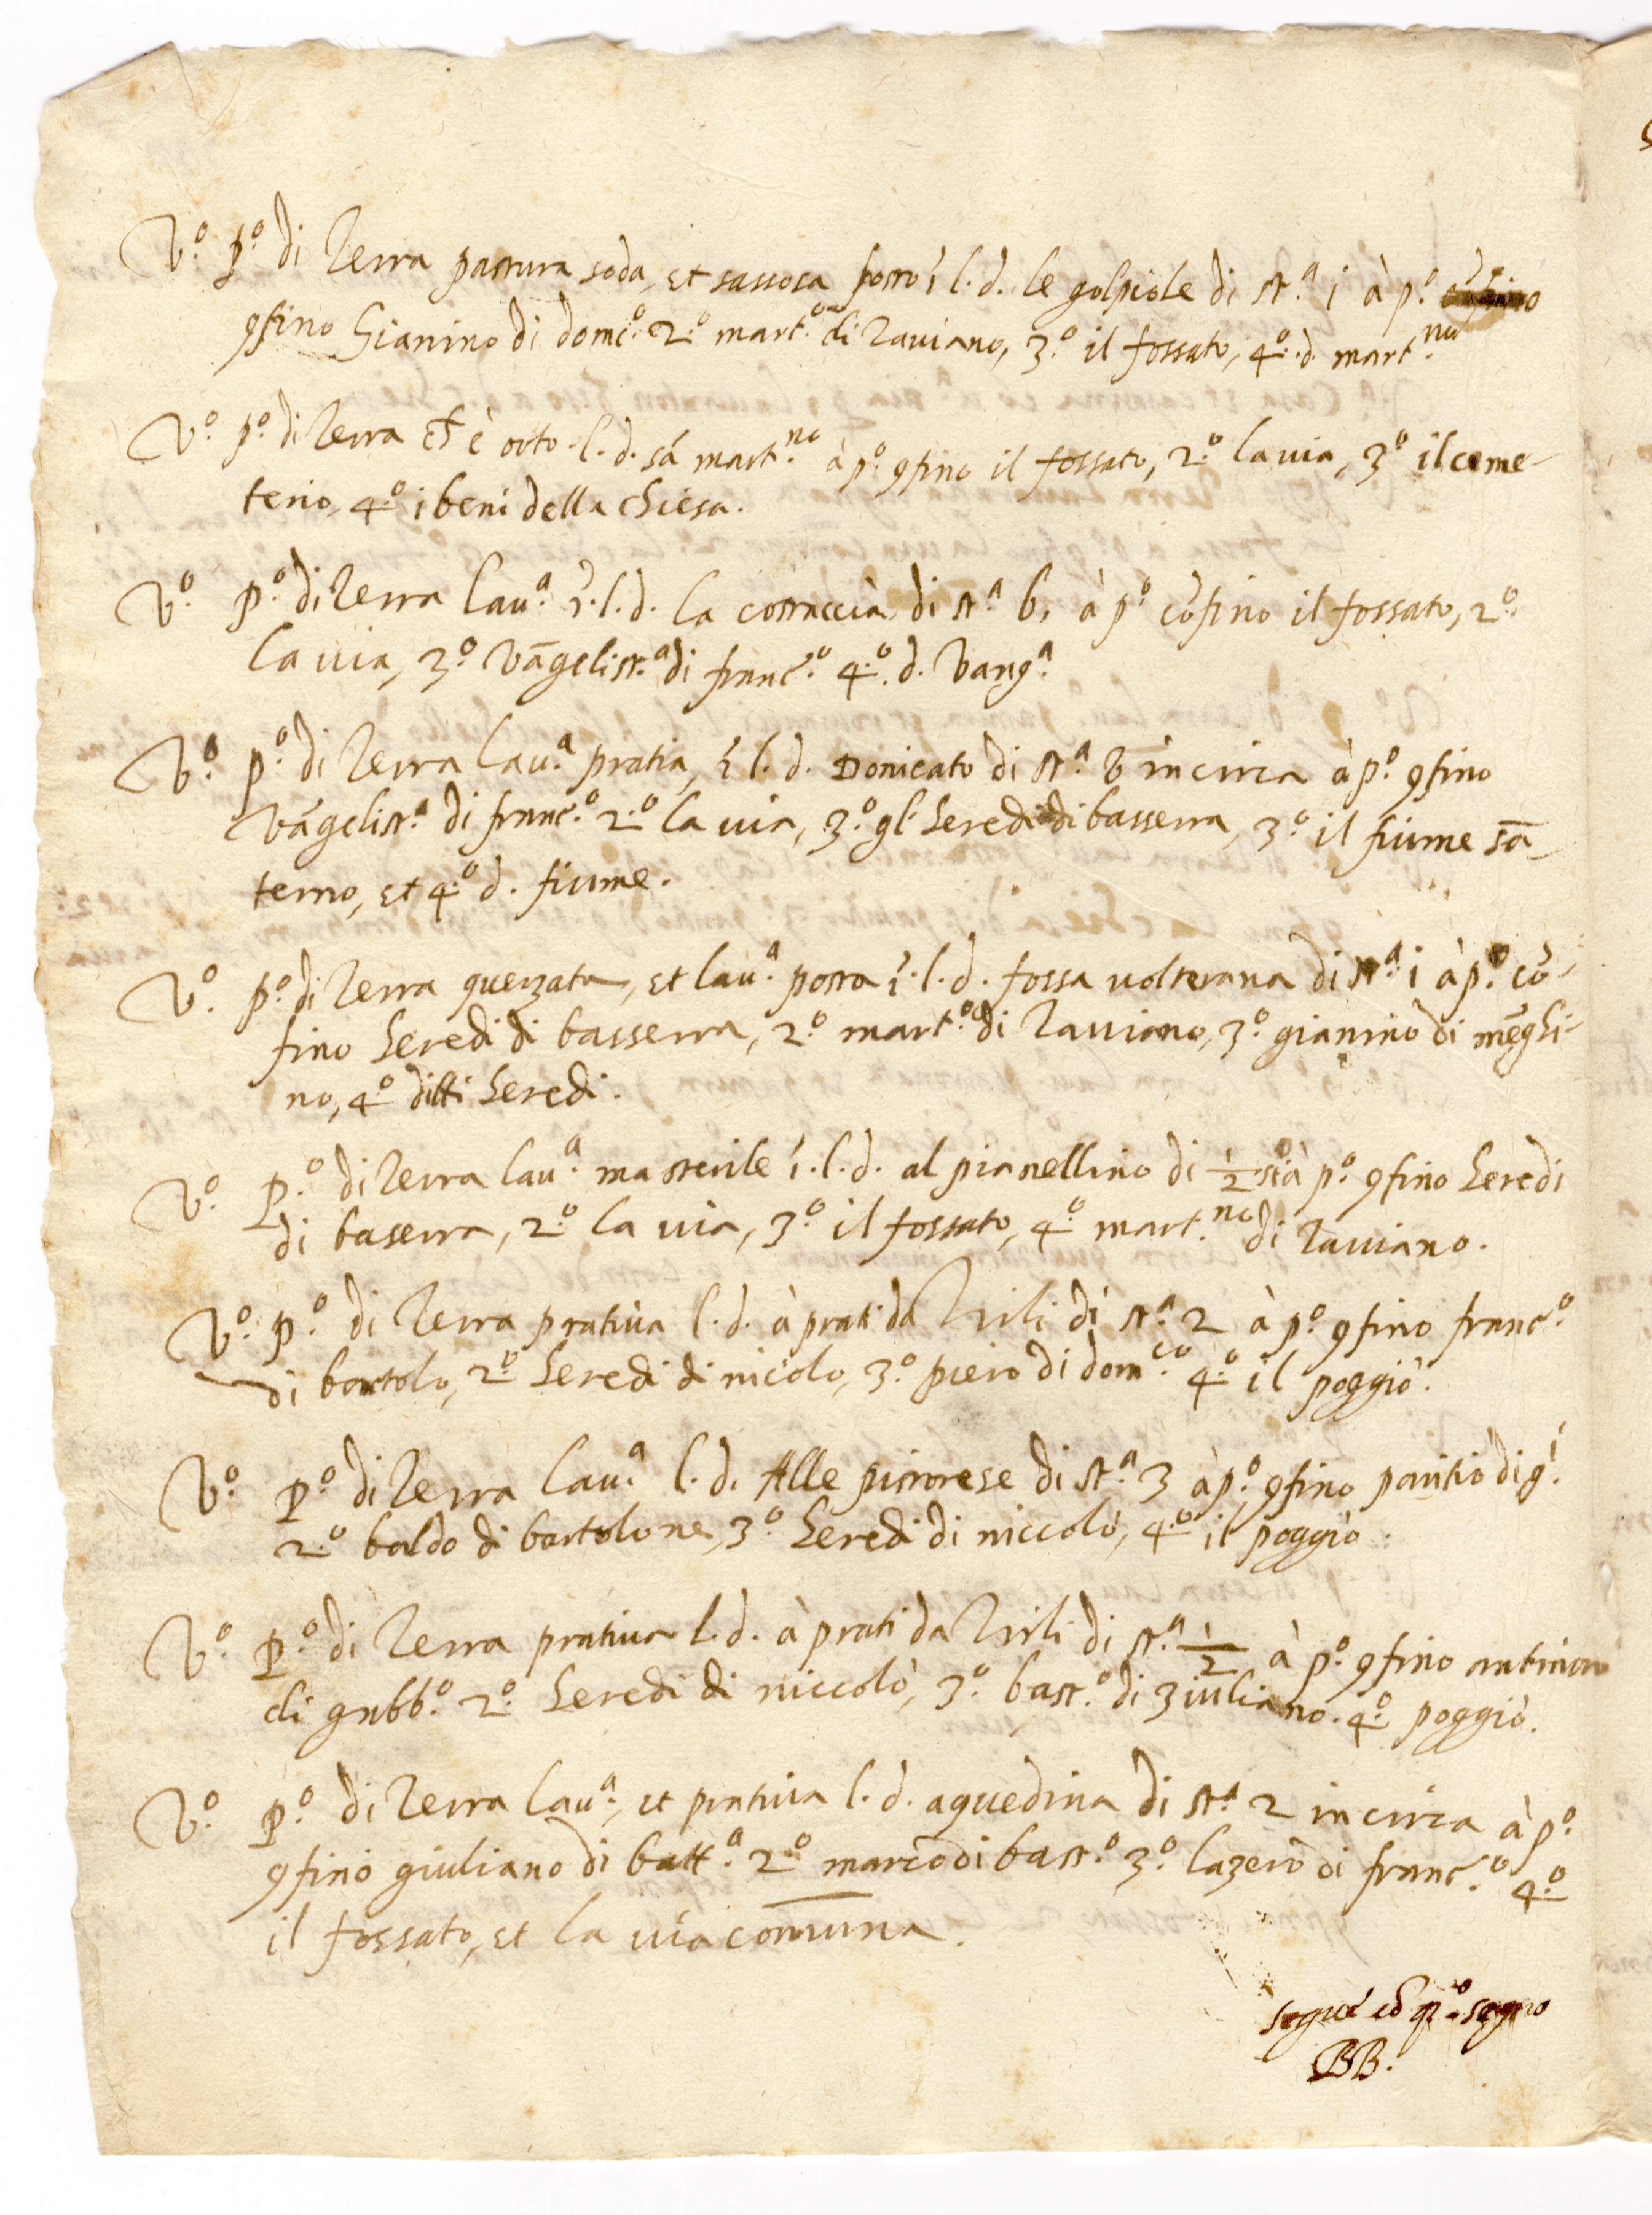 Vº pº di Terra pastura soda, et sassosa posto ĩ l.d. le golpiole di stª i à pº
ꝯfino Gianino di domcº 2º martº di Taviano, 3º il fossato, 4º d. martno
Vº pº di Terra ch̃ è orto l.d. sã martno à pº ꝯfino il fossato, 2º la via, 3º il ceme-
terio, 4º i beni della chiesa.
Vº pº di Terra lauª ĩ l.d. la costaccia di stª b, à pº cõfino il fossato, 2º
la via, 3º Vãgelistª di francº 4º d. Vangª
Vº pº di Terra lauª pratia, ĩ l.d. Donicato di stª b incirca à pº ꝯfino
Vãgelistª di francº 2º la via, 3º gl' heredi di basserra, 3º il fiume sã-
terno, et 4º d. fiume.
Vº pº di Terra querzata, et lauª posta ĩ l.d. fossa volterana di stª i à pº cõ-
fino heredi di basserra, 2º martº di Taviano, 3º gianino di mẽghi-
no, 4º ditti heredi.
Vº pº di Terra lauª ma sterile ĩ l.d. al pianellino di 1/2 stº à pº ꝯfino heredi
di baserra, 2º la via, 3º il fossato, 4º martno di Taviano.
Vº pº di Terra prativa l.d. à prati da Tirli di stª 2 à pº ꝯfino francº
di bartolo, 2º heredi di nicolo, 3º piero di domco 4º il poggio.
Vº pº di Terra lauª l.d. Alle pistorese di stª 3 à pº ꝯfino di gi
2º baldo di bartolone, 3º heredi di niccolò, 4º il poggio.
Vº pº di Terra prativa l.d. à prati da Tirli di stª 1/2 à pº ꝯfino
di gubbº 2º heredi di niccolò, 3º bastº di ziuliano. 4º poggio.
Vº pº di Terra lauª, et prativa l.d. aquedina di stª 2 incirca à pº
ꝯfino giuliano di battª 2º marco di bastº 3º lazero di francº 4º
il fossato, et la via comuna.
segue cõ qº segno
BB.